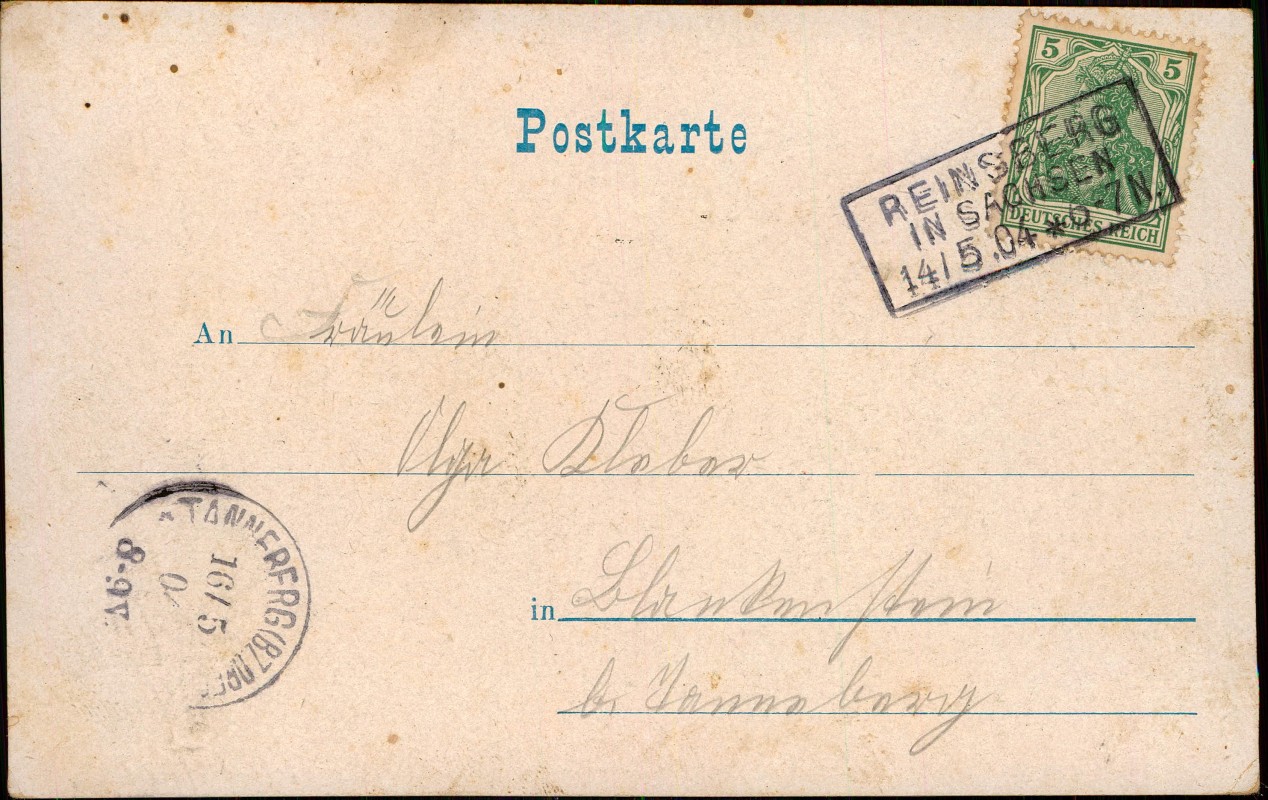 Postkarte
5 5
DEUTSCHES REICH
REINSBERG
IN SACHSEN
14/5.04*6-7N.
An Fräulein
Olga Kleber
in Blankenstein
b. Tanneberg
* TANNEBERG (BZ.DRE
16/5
0
8-9V